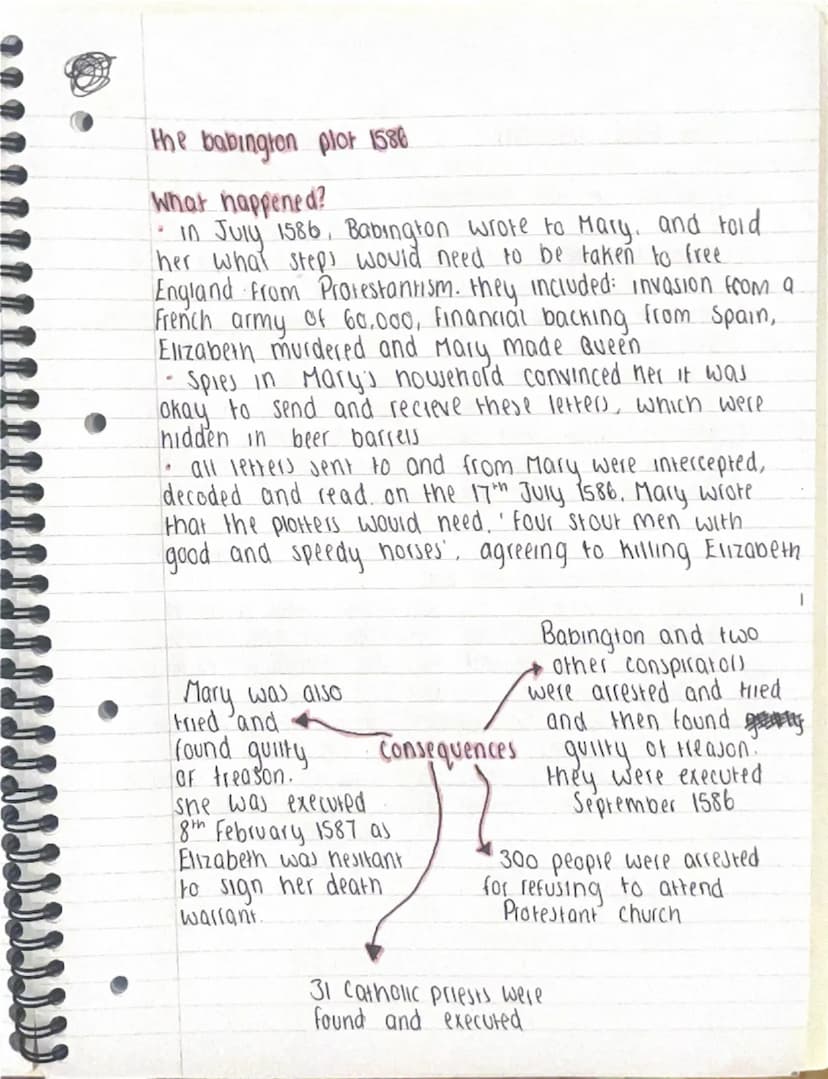 the babington plot 1586
What happened?
• in July 1586, Babington wrote to Mary, and told
her what steps would need to be taken to free
England from Protestantism. they included: invasion from a
French army of 60,000, financial backing from Spain,
Elizabeth murdered and Mary made Queen
• Spies in Mary's household convinced her it was
okay to send and recieve these letters, which were
hidden in beer barrels
• all letters sent to and from Mary were intercepted,
decoded and read. on the 17th July 1586, Mary wrote
that the plotters would need, 'four stout men with
good and speedy horses', agreeing to killing Elizabeth
Babington and two
other conspirators
were arrested and tried
and then found
guilty of treason.
they were executed
September 1586
Mary was also
tried and
found guilty
of treason.
she was executed
8th February 1587 as
Elizabeth was hesitant
to sign her death
warrant.
Consequences
300 people were arrested
for refusing to attend
Protestant church
31 Catholic priests were
found and executed